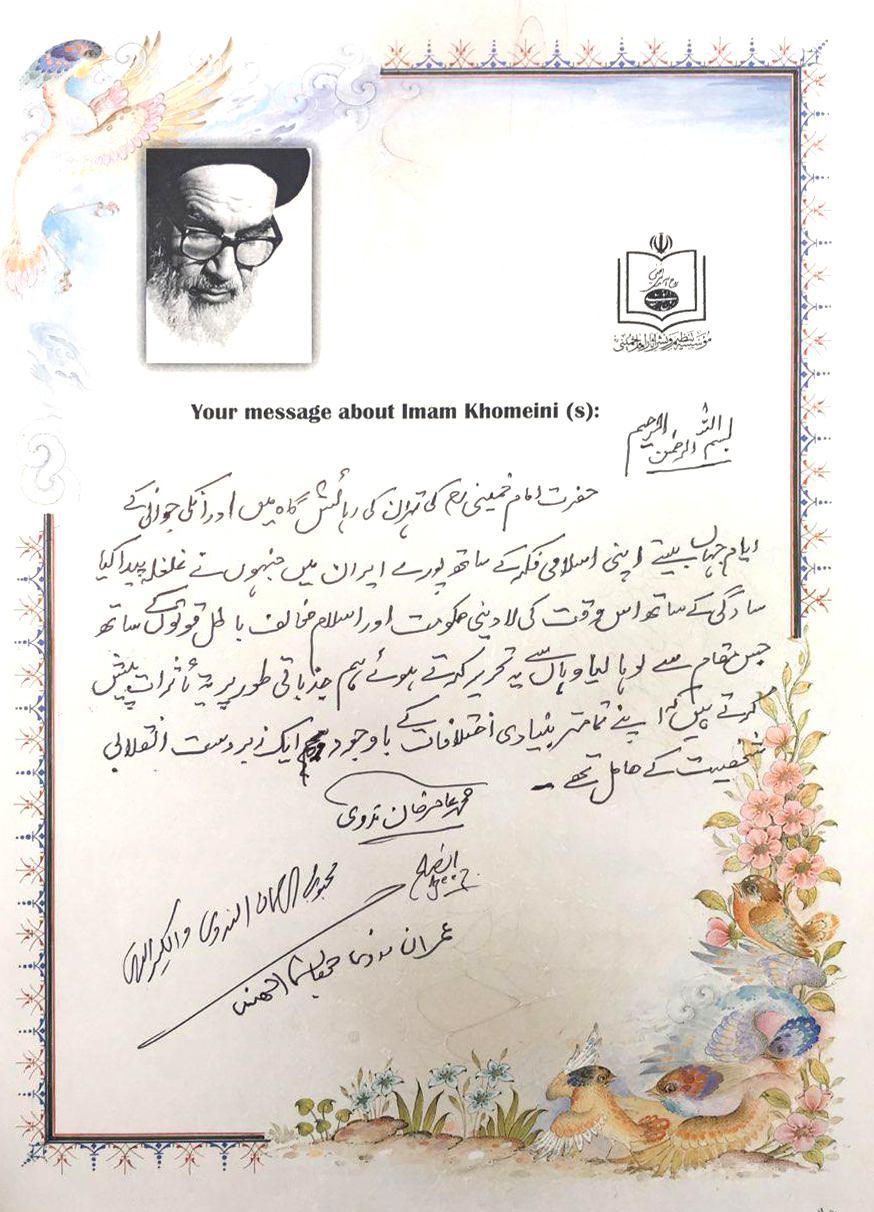 مؤسسه تنظیم و نشر آثار امام خمینی
Your message about Imam Khomeini (s):
بسم اللہ الرحمن الرحیم
حضرت امام خمینی رح کی تہران کی رہائش گاہ میں اور انکی جوانی کے
ایام جہاں بیتے اپنی اسلامی فکر کے ساتھ پورے ایران میں جنہوں نے غلغلہ پیدا کیا
سادگی کے ساتھ اس وقت کی لادینی حکومت اور اسلام مخالف باطل قوتوں کے ساتھ
جس مقام سے لوہا لیا وہاں سے یہ تحریر کرتے ہوئے ہم جذباتی طور پر یہ تأثرات پیش
کرتے ہیں کہ اپنے تمامتر بنیادی اختلافات کے باوجود ایک زبردست انقلابی
شخصیت کے حامل تھے -
محمد عامر خان ندوی
الندوی
عمران
الهند